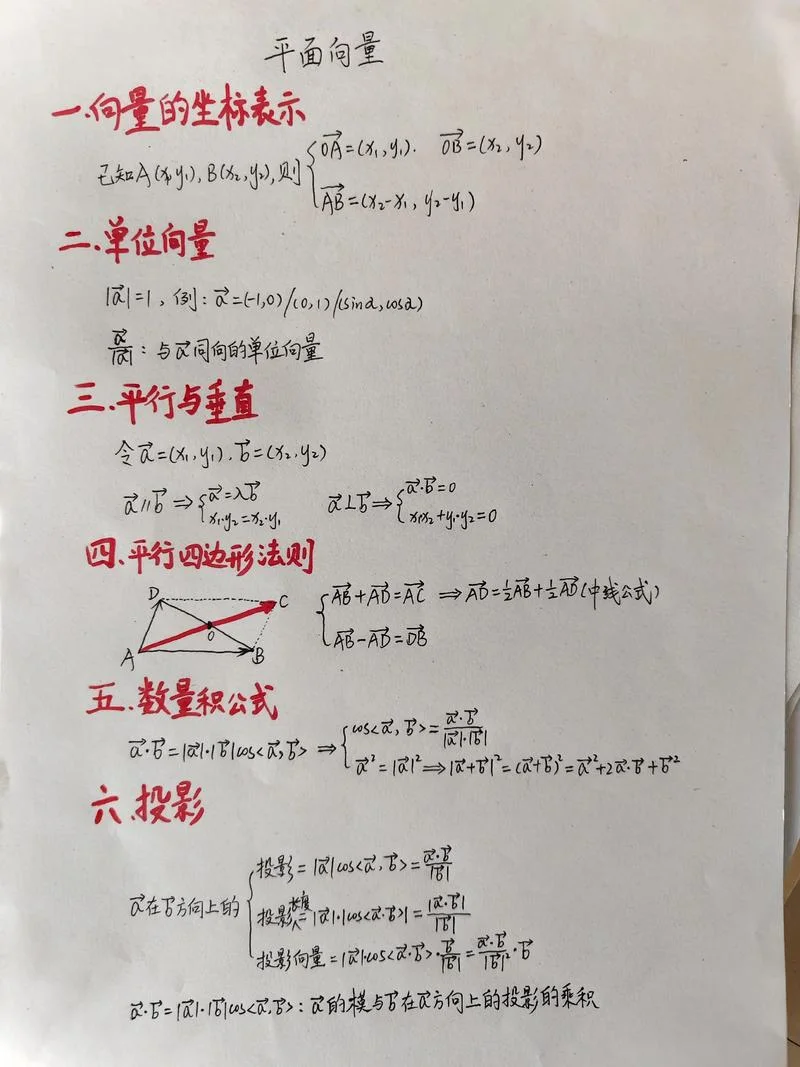 平面向量
一.向量的坐标表示
已知A(x₁,y₁),B(x₂,y₂),则{OA⃗=(x₁,y₁). OB⃗=(x₂,y₂)
AB⃗=(x₂-x₁, y₂-y₁)
二.单位向量
|a⃗|=1, 例: a⃗=(-1,0)/(0,1)/(sinα,cosα)
a⃗/|a⃗|: 与a⃗同向的单位向量
三.平行与垂直
令a⃗=(x₁,y₁).b⃗=(x₂,y₂)
a⃗∥b⃗⇒{a⃗=λb⃗ a⃗⊥b⃗⇒{a⃗·b⃗=0
x₁·y₂=x₂·y₁ x₁x₂+y₁·y₂=0
四.平行四边形法则
D C O A B
{AB⃗+AD⃗=AC⃗ ⇒AD⃗=½AB⃗+½AD⃗(中线公式)
AB⃗-AD⃗=DB⃗
五.数量积公式
a⃗·b⃗=|a⃗|·|b⃗|cos<a⃗,b⃗> ⇒{cos<a⃗,b⃗>=a⃗·b⃗/|a⃗|·|b⃗|
a⃗²=|a⃗|²⇒|a⃗+b⃗|²=(a⃗+b⃗)²=a⃗²+2a⃗·b⃗+b⃗²
六.投影
a⃗在b⃗方向上的{投影=|a⃗|cos<a⃗,b⃗>=a⃗·b⃗/|b⃗|
投影长度=|a⃗|·|cos<a⃗·b⃗>|=|a⃗·b⃗|/|b⃗|
投影向量=|a⃗|·cos<a⃗·b⃗>·b⃗/|b⃗|=a⃗·b⃗/|b⃗|²·b⃗
a⃗·b⃗=|a⃗|·|b⃗|cos<a⃗,b⃗>: a⃗的模与b⃗在a⃗方向上的投影的乘积